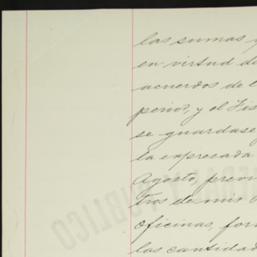 las sumas
en virtud de
acuerdos de
perior, y el Tes
se guardase
la expresada
Agosto, prexi
tros de mis
oficinas, for
las cantidad